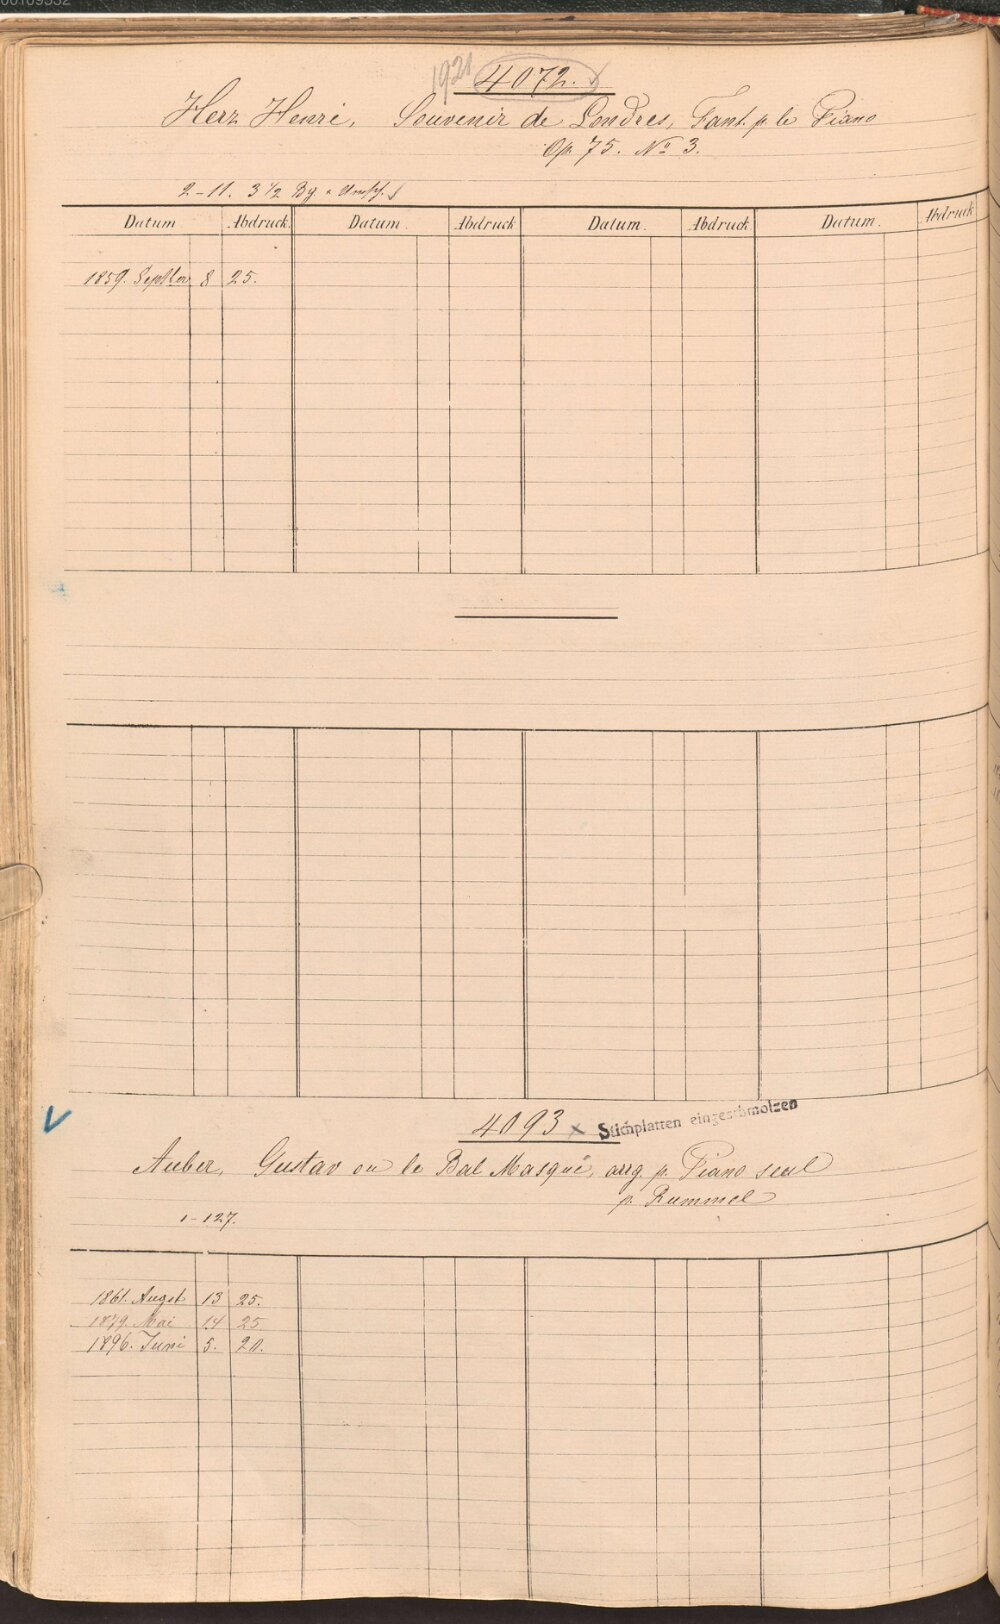 00109532
1921 4072.
Herz Henri, Souvenir de Londres, Fant. p. le Piano
Op. 75. No 3.
2-11. 3 1/2 Bg.
Datum Abdruck. Datum. Abdruck Datum. Abdruck Datum. Abdruck
1859. Septbr 8 25.
4093 x Stichplatten eingeschmolzen
Auber, Gustav ou le Bal Masqué, arrg. p. Piano seul
p. Rummel
1-127.
1861. Augst 13 25.
1879. Mai 14 25
1896. Juni 5. 20.